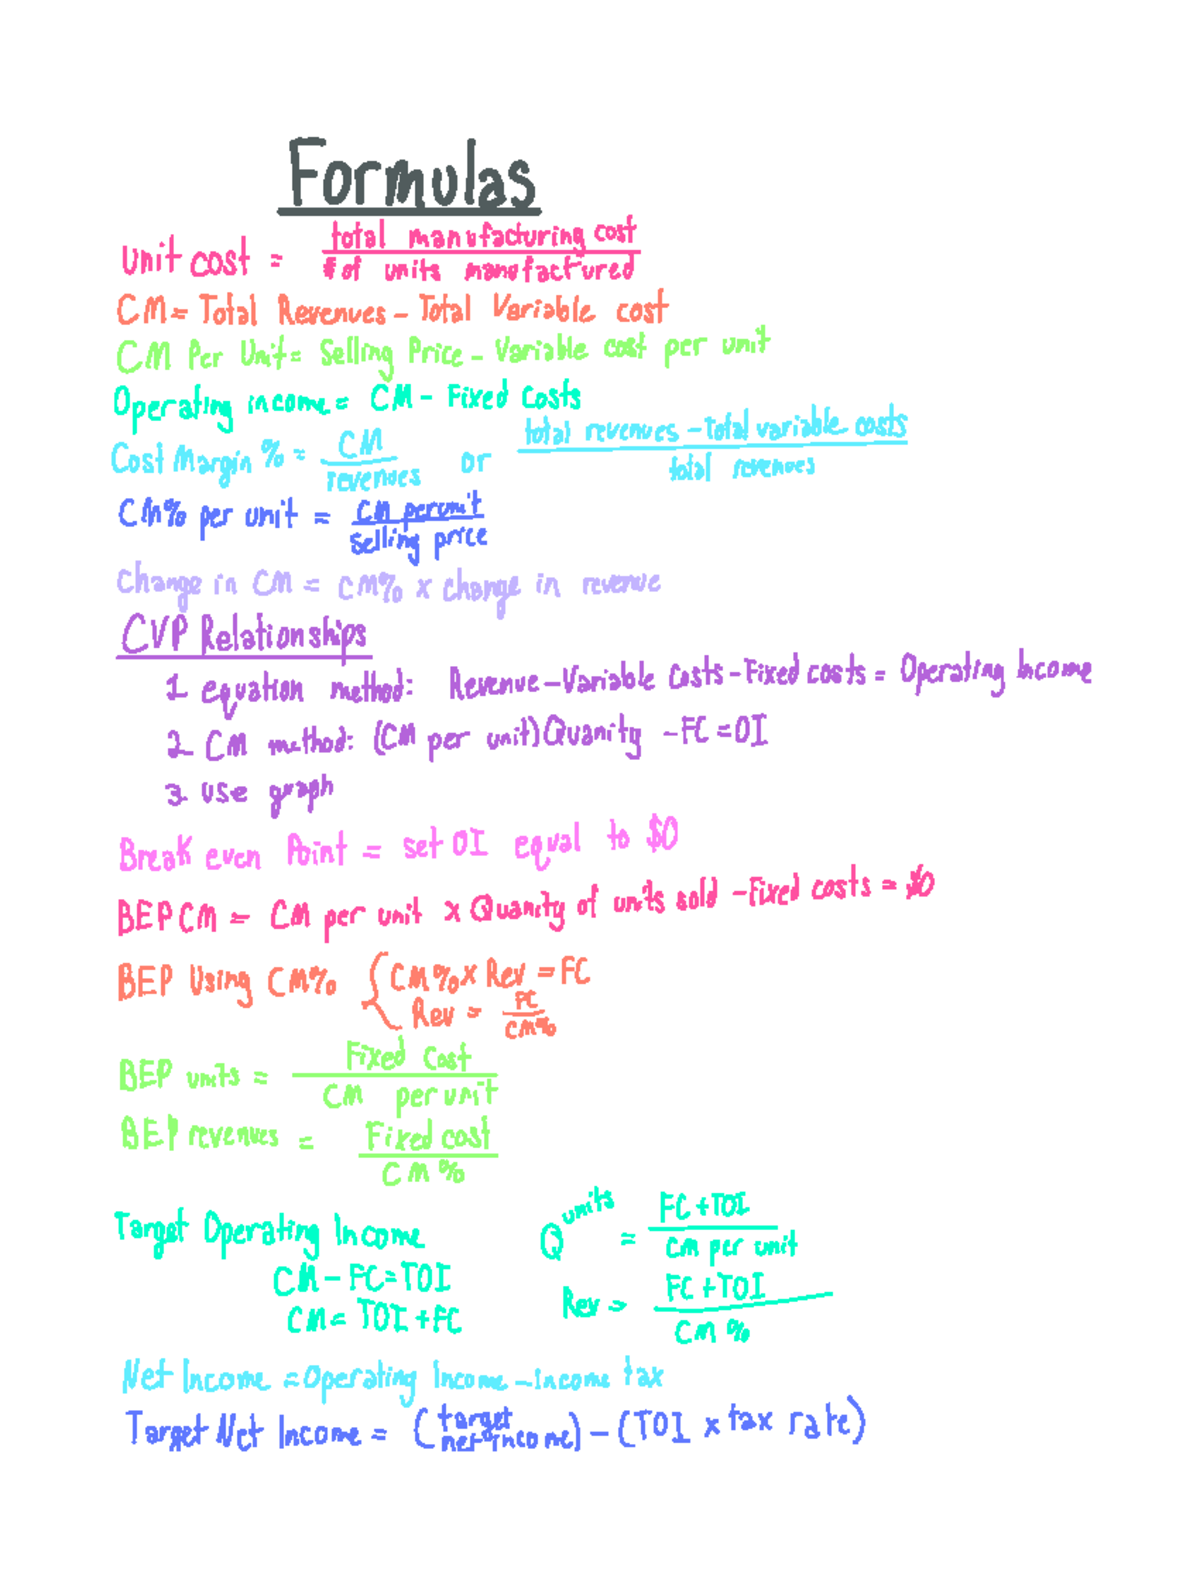 Formulas
unit cost = total manufacturing cost
# of units manufactured
CM = Total Revenues - Total Variable cost
CM Per Unit = Selling Price - Variable cost per unit
Operating income = CM - Fixed Costs
Cost Margin % = CM / revenues or total revenues - Total variable costs / total revenues
CM% per unit = CM per unit / selling price
Change in CM = CM% x change in revenue
CVP Relationships
1 equation method: Revenue - Variable Costs - Fixed costs = Operating Income
2 CM method: (CM per unit) Quanity - FC = OI
3 use graph
Break even Point = set OI equal to $0
BEP CM = CM per unit x Quanity of units sold - Fixed costs = $0
BEP Using CM% { CM% x Rev = FC
Rev = FC / CM%
BEP units = Fixed Cost / CM per unit
BEP revenues = Fixed cost / CM %
Target Operating Income
CM - FC = TOI
CM = TOI + FC
Q units = FC + TOI / CM per unit
Rev = FC + TOI / CM %
Net Income = Operating Income - Income tax
Target Net Income = (target net income) - (TOI x tax rate)